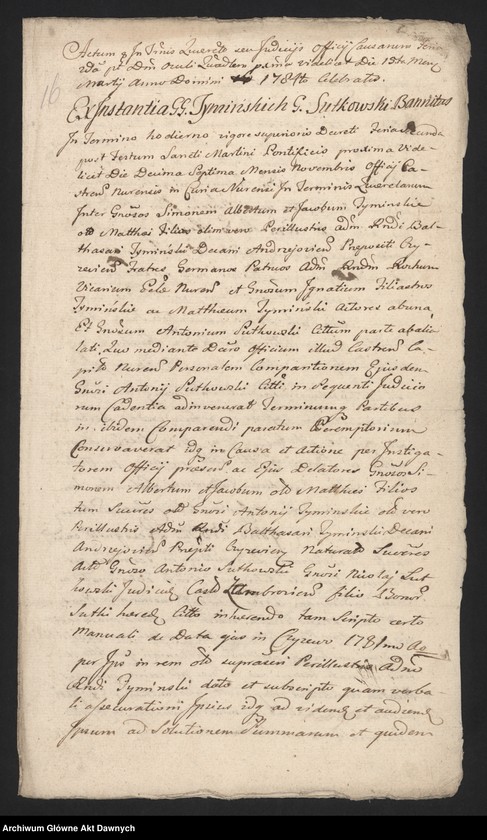 16
Actum in Trnis Querelar seu Judicijs Officij Causarum Feria
2da pt Dnicam Oculi Quadrlem prima videlicet Die 15ta Mens
Martij Anno Domini 1784to Celebratis.
Ex Instantia GG. Tyminskich G. Sutkowski Bannitus
In Termino hodierno vigore superioris Decreti Feria Secunda
post Festum Sancti Martini Pontificis proxima Vide-
licet Die Decima Septima Mensis Novembris Officij Ca-
stren Nurensis in Curia Nurensi In Terminis Querelarum
Inter Gnosos Simonem Albertum et Jacobum Tyminskie
olim Matthæi Filios olim vero Perillustris Adm Rndi Bal-
thasari Tyminski Decani Andrejovien Prepositi Czy-
zevien Fratres Germanos Patruos Adm Rndm Rochum
Vicarium Eclæ Nuren et Gnosum Ignatium Filiastros
Tyminskie ac Matthæum Tyminski Actores ab una,
Et Gnosum Antonium Sutkowski Citatum parte ab alia
lati, Quo mediante Decreto Officium illud Castren Ca-
pitle Nuren Personalem Comparitionem Ejusdem
Gnosi Antonij Sutkowski Citti in Sequenti Judicio
rum Cadentia adinvenerat Terminumq Partibus
in ibidem Comparendi paratum Peremptorium
Conservaverat idq in Causa et Actione per Instiga-
torem Officij præsens ac Ejus Delatores Gnosos Si-
monem Albertum et Jacobum olim Matthæi Filios
tum Succres olim Gnosi Antonij Tyminskie olim vero
Perillustris Adm Rndi Balthasari Tyminski Decani
Andrejovien Præpti Czyzevien Naturales Succres
Actt Gnoso Antonio Sutkowski Gnosi Nicolai Sut
kowski Judicis Castr Zambrovien filio Bonor
Sutki hæredi Citto inhærendo tam Scripto certo
Manuali de Data ejus in Czyzewo 1781mo Ao
per Ips in rem olim suprascri Perillustris Adm
Rndi Tyminski dato et subscripto quam verba-
li assecurationi Ipsius idq ad videndum et audiendum
Ipsum ad Solutionem Summarum et quidem
Archiwum Główne Akt Dawnych